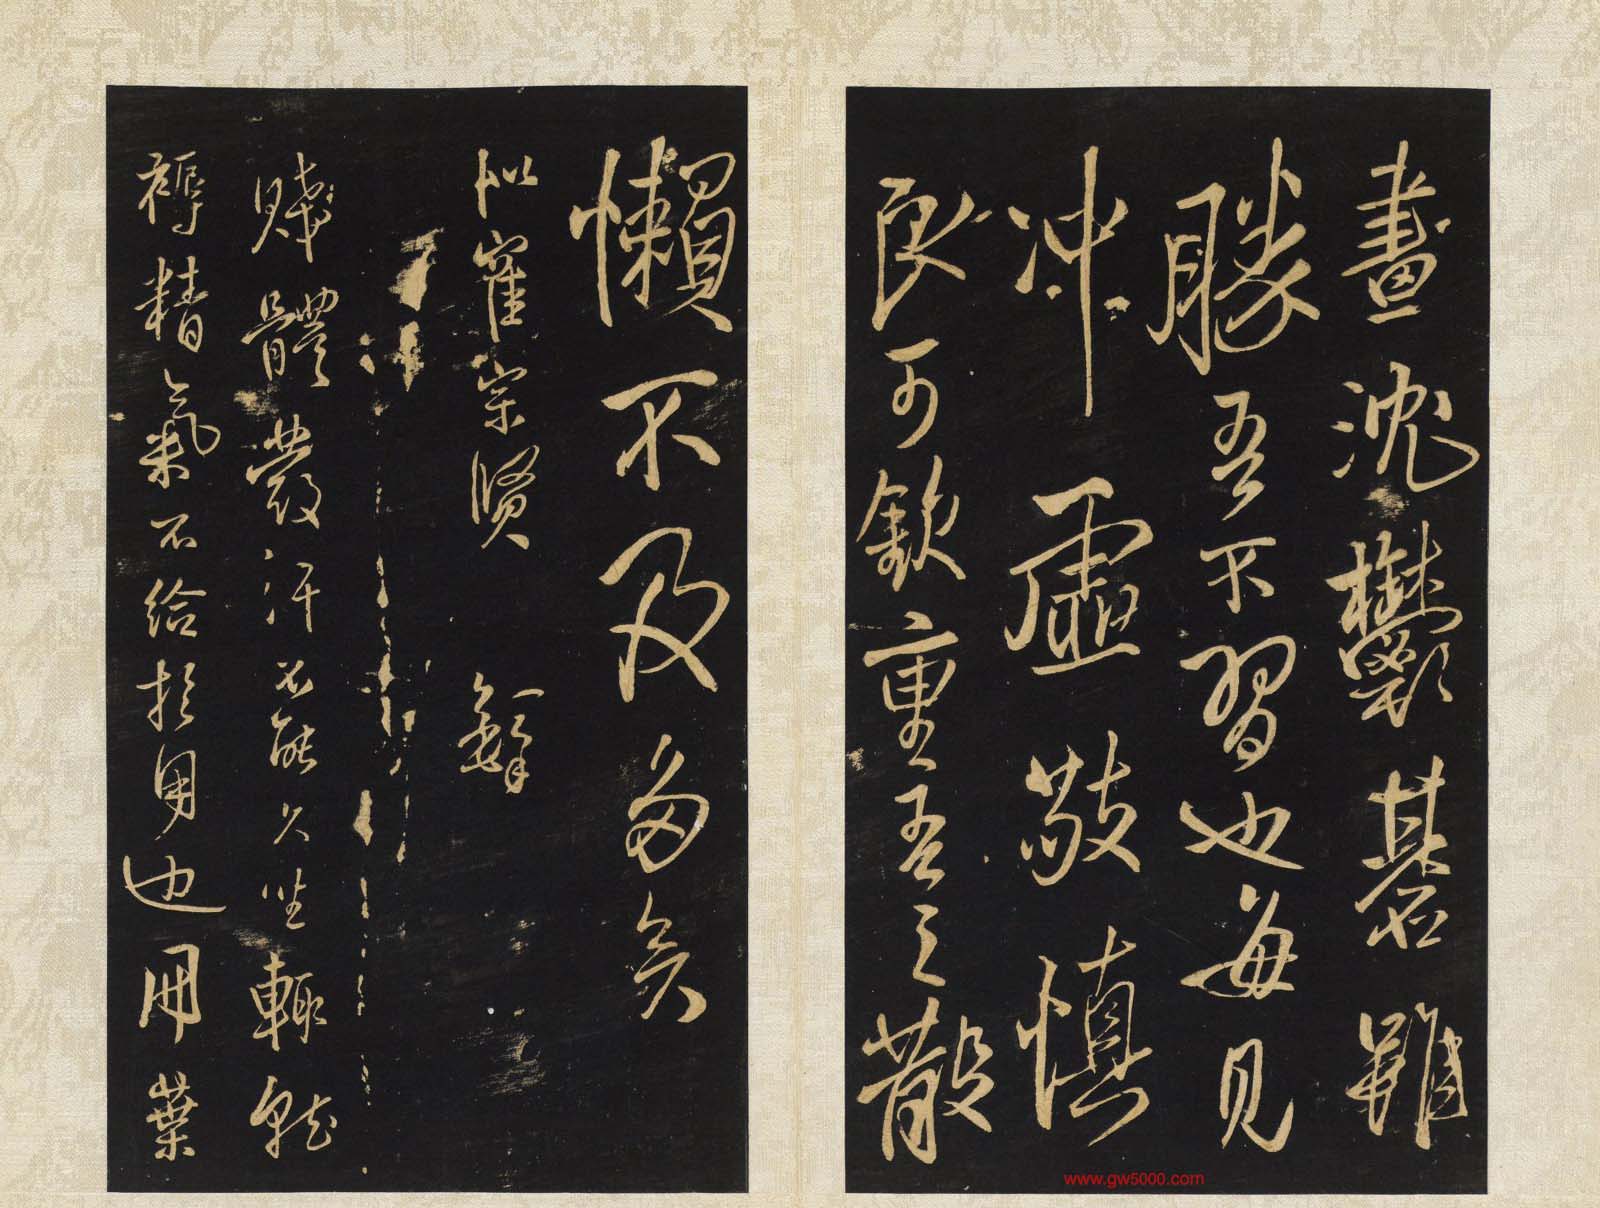 畫沈鬱碁雖
勝吾不習也每見
沖虛敬慎
良可欽重吾之散
懶不及多矣
似崔宗賢
賤體發汗不能久坐輒就
褥精氣不給於用也用葉
www.gw5000.com